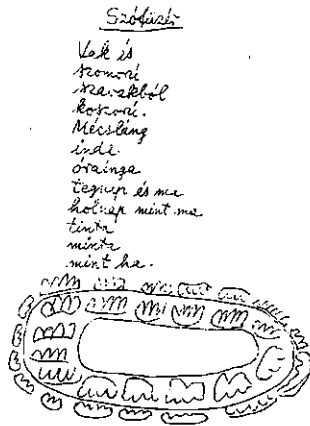 Szófüzér
Vak is
szomorú
szavakból
koszorú.
Mécsláng
inda.
órainga
tegnap és ma
holnap mint ma
tinta
minta
mint ha.